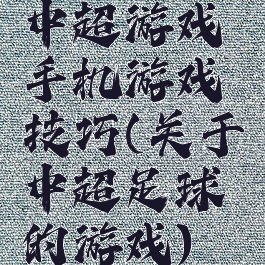 中超游戏
手机游戏
技巧(关于
中超足球
的游戏)